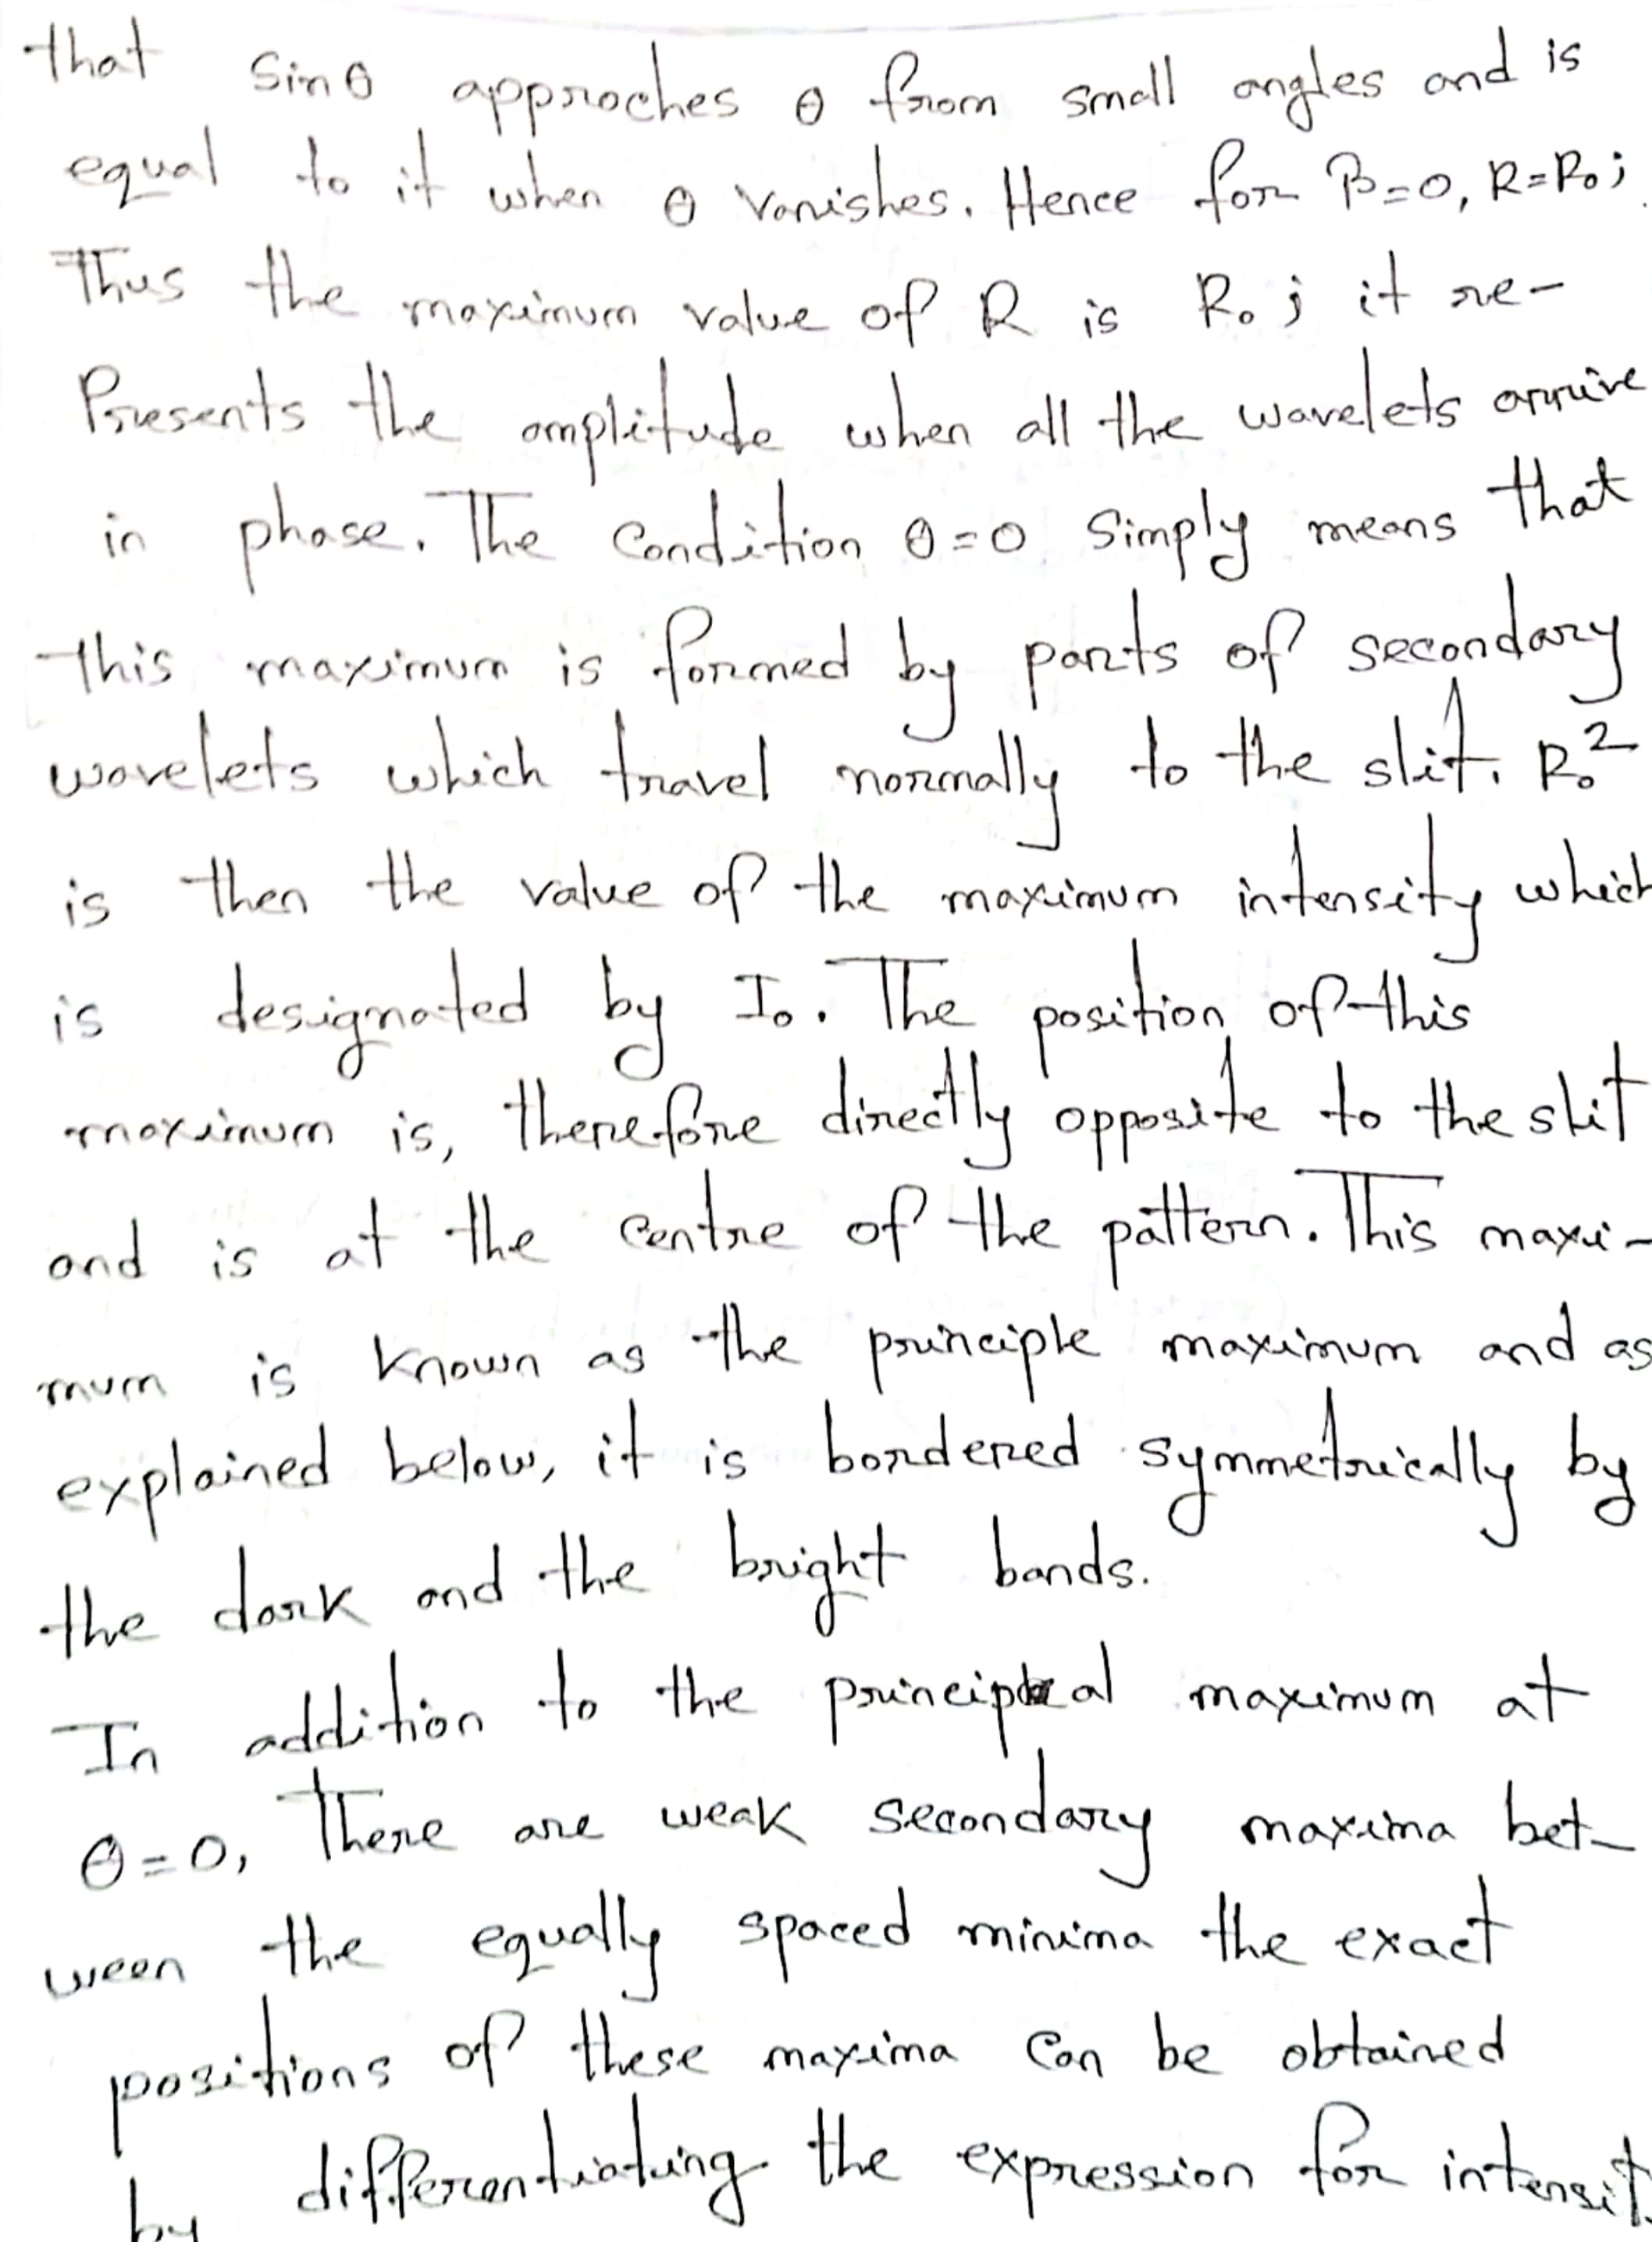 that sinθ approches θ from small angles and is
equal to it when θ vanishes. Hence for β=0, R=R₀;
Thus the maximum value of R is R₀; it re-
Presents the amplitude when all the wavelets arrive
in phase. The condition θ=0 simply means that
this maximum is formed by parts of secondary
wavelets which travel normally to the slit. R₀²
is then the value of the maximum intensity which
is designated by I₀. The position of this
maximum is, therefore directly opposite to the slit
and is at the centre of the pattern. This maxi-
mum is known as the principle maximum and as
explained below, it is bordered symmetrically by
the dark and the bright bands.
In addition to the principal maximum at
θ=0, There are weak secondary maxima bet-
ween the equally spaced minima the exact
positions of these maxima can be obtained
by differentiating the expression for intensit